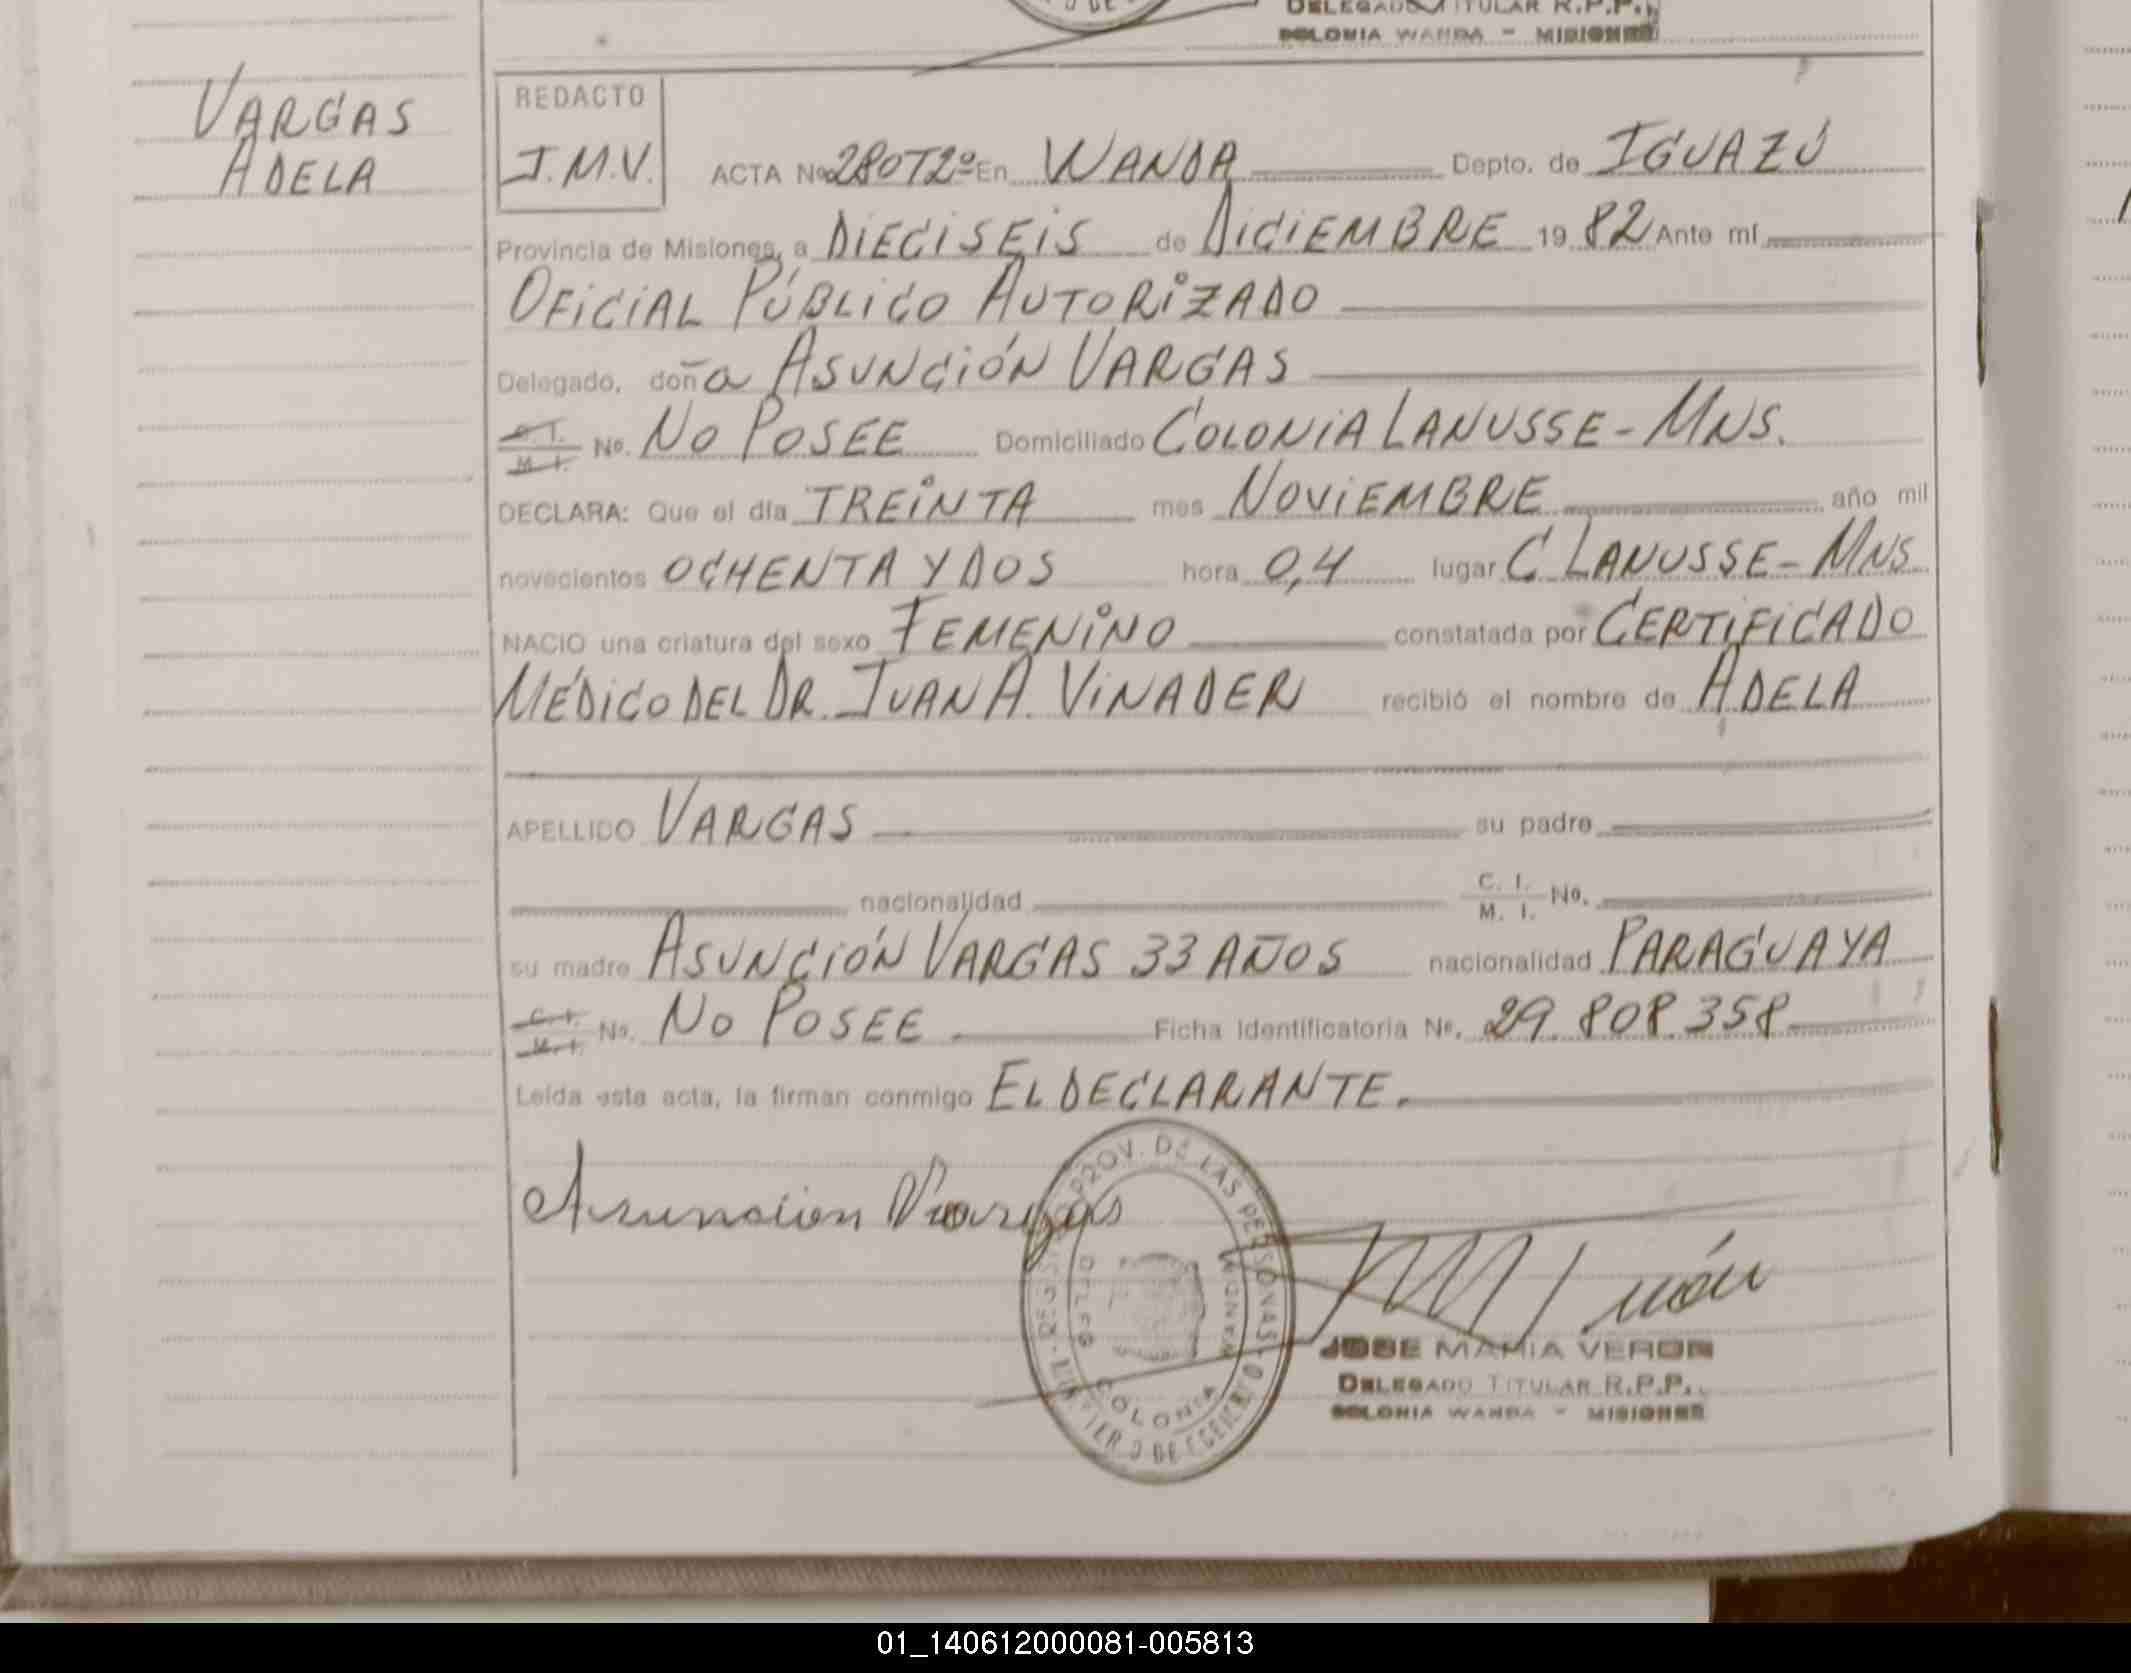 DELEGADO TITULAR R.P.P.
COLONIA WANDA - MISIONES
VARGAS
ADELA
REDACTO
J.M.V.
ACTA Nº 280T2º En WANDA Depto. de IGUAZÚ
Provincia de Misiones, a DIECISEIS de DICIEMBRE 19 82 Ante mí
OFICIAL PÚBLICO AUTORIZADO
Delegado, doña ASUNCIÓN VARGAS
C. I. M. I. No. NO POSEE Domiciliado COLONIA LANUSSE - MNS.
DECLARA: Que el día TREINTA mes NOVIEMBRE año mil
novecientos OCHENTA Y DOS hora 0,4 lugar C LANUSSE - MNS
NACIO una criatura del sexo FEMENINO constatada por CERTIFICADO
MÉDICO DEL DR. JUAN A. VINADER recibió el nombre de ADELA
APELLIDO VARGAS su padre
nacionalidad C. I. M. I. No.
su madre ASUNCIÓN VARGAS 33 AÑOS nacionalidad PARAGUAYA
C. I. M. I. No. NO POSEE Ficha Identificatoria No. 29.808.358
Leída esta acta, la firman conmigo EL DECLARANTE.
Asuncion Vargas
PROV. DE LAS PERSONAS
COLONIA
WANDA
JOSE MARIA VERON
DELEGADO TITULAR R.P.P.
COLONIA WANDA - MISIONES
01_140612000081-005813